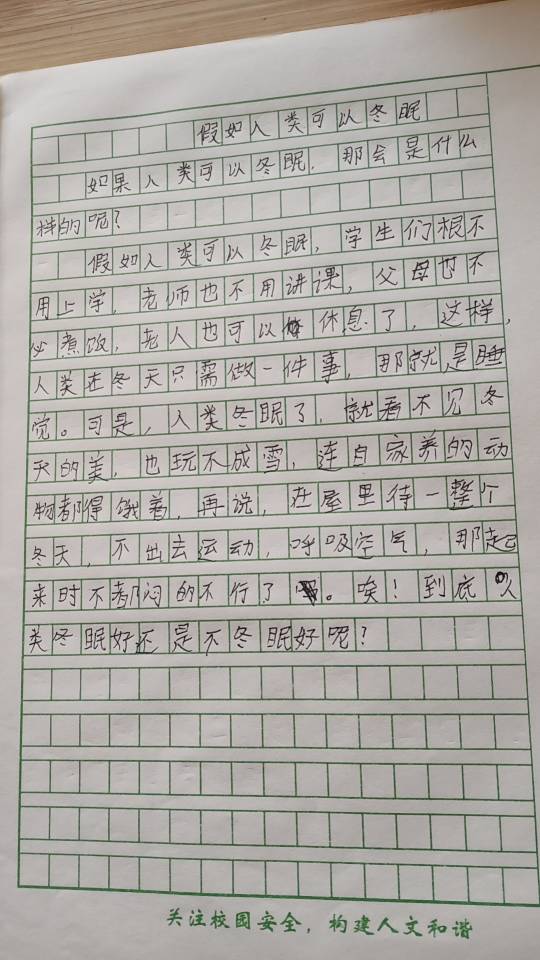 假如人类可以冬眠
如果人类可以冬眠，那会是什么
样的呢？
假如人类可以冬眠，学生们根不
用上学，老师也不用讲课，父母也不
必煮饭，老人也可以休息了，这样，
人类在冬天只需做一件事，那就是睡
觉。可是，人类冬眠了，就看不见冬
天的美，也玩不成雪，连自家养的动
物都得饿着，再说，在屋里待一整个
冬天，不出去运动，呼吸空气，那起
来时不都闷的不行了。唉！到底人
类冬眠好还是不冬眠好呢？
关注校园安全，构建人文和谐